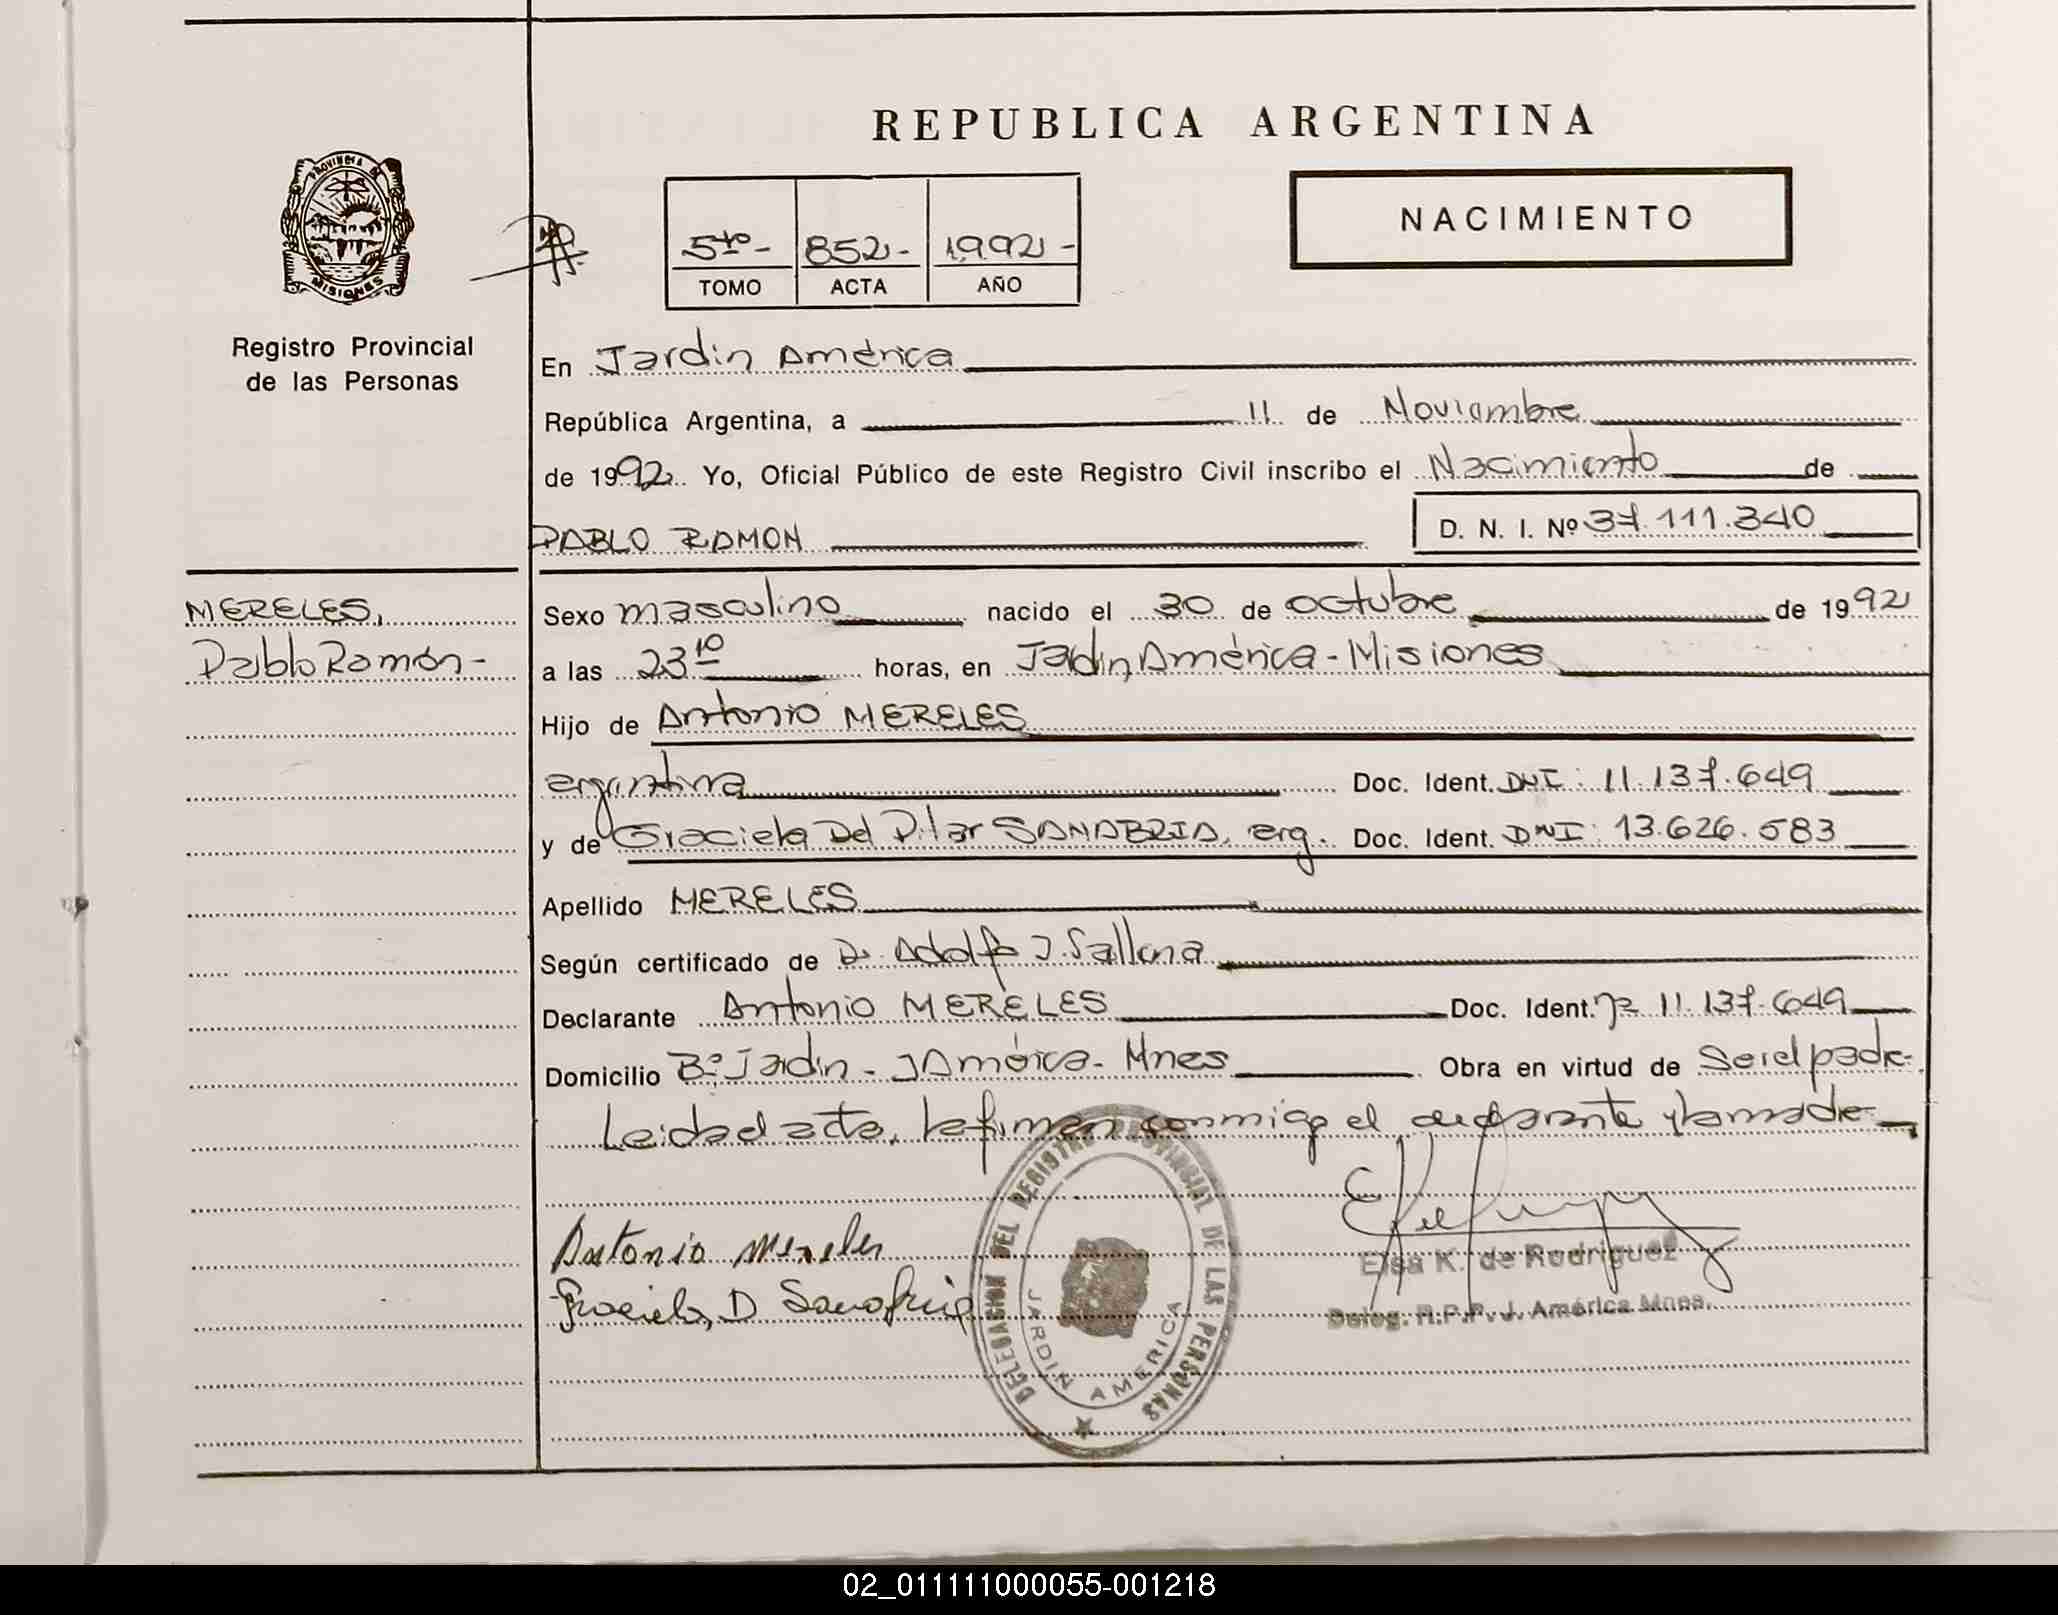 REPUBLICA ARGENTINA
PROVINCIA DE
MISIONES
NACIMIENTO
5to- 852- 1.992-
TOMO ACTA AÑO
Registro Provincial
de las Personas
En Jardin América
República Argentina, a 11 de Noviembre
de 1992. Yo, Oficial Público de este Registro Civil inscribo el Nacimiento de
PABLO RAMON D. N. I. Nº 37.111.340
MERELES,
Pablo Ramón-
Sexo masculino nacido el 30 de octubre de 1992
a las 23 10 horas, en Jardin América - Misiones
Hijo de Antonio MERELES
argentina Doc. Ident. DNI: 11.137.649
y de Graciela Del Pilar SANABRIA, arg. Doc. Ident. DNI: 13.626.583
Apellido MERELES
Según certificado de Dr. Adolfo J. Sallena
Declarante Antonio MERELES Doc. Ident. 11.137.649
Domicilio Bº Jardin - JAmérica - Mnes Obra en virtud de Ser el padre.
Leida el acta, la firman conmigo el declarante y la madre-
Antonio Mereles
Graciela D Sanabria
DELEGACION DEL REGISTRO PROVINCIAL DE LAS PERSONAS
JARDIN AMERICA
Elsa K. de Rodriguez
Deleg. R.P.P. J. América Mnes.
02_011111000055-001218